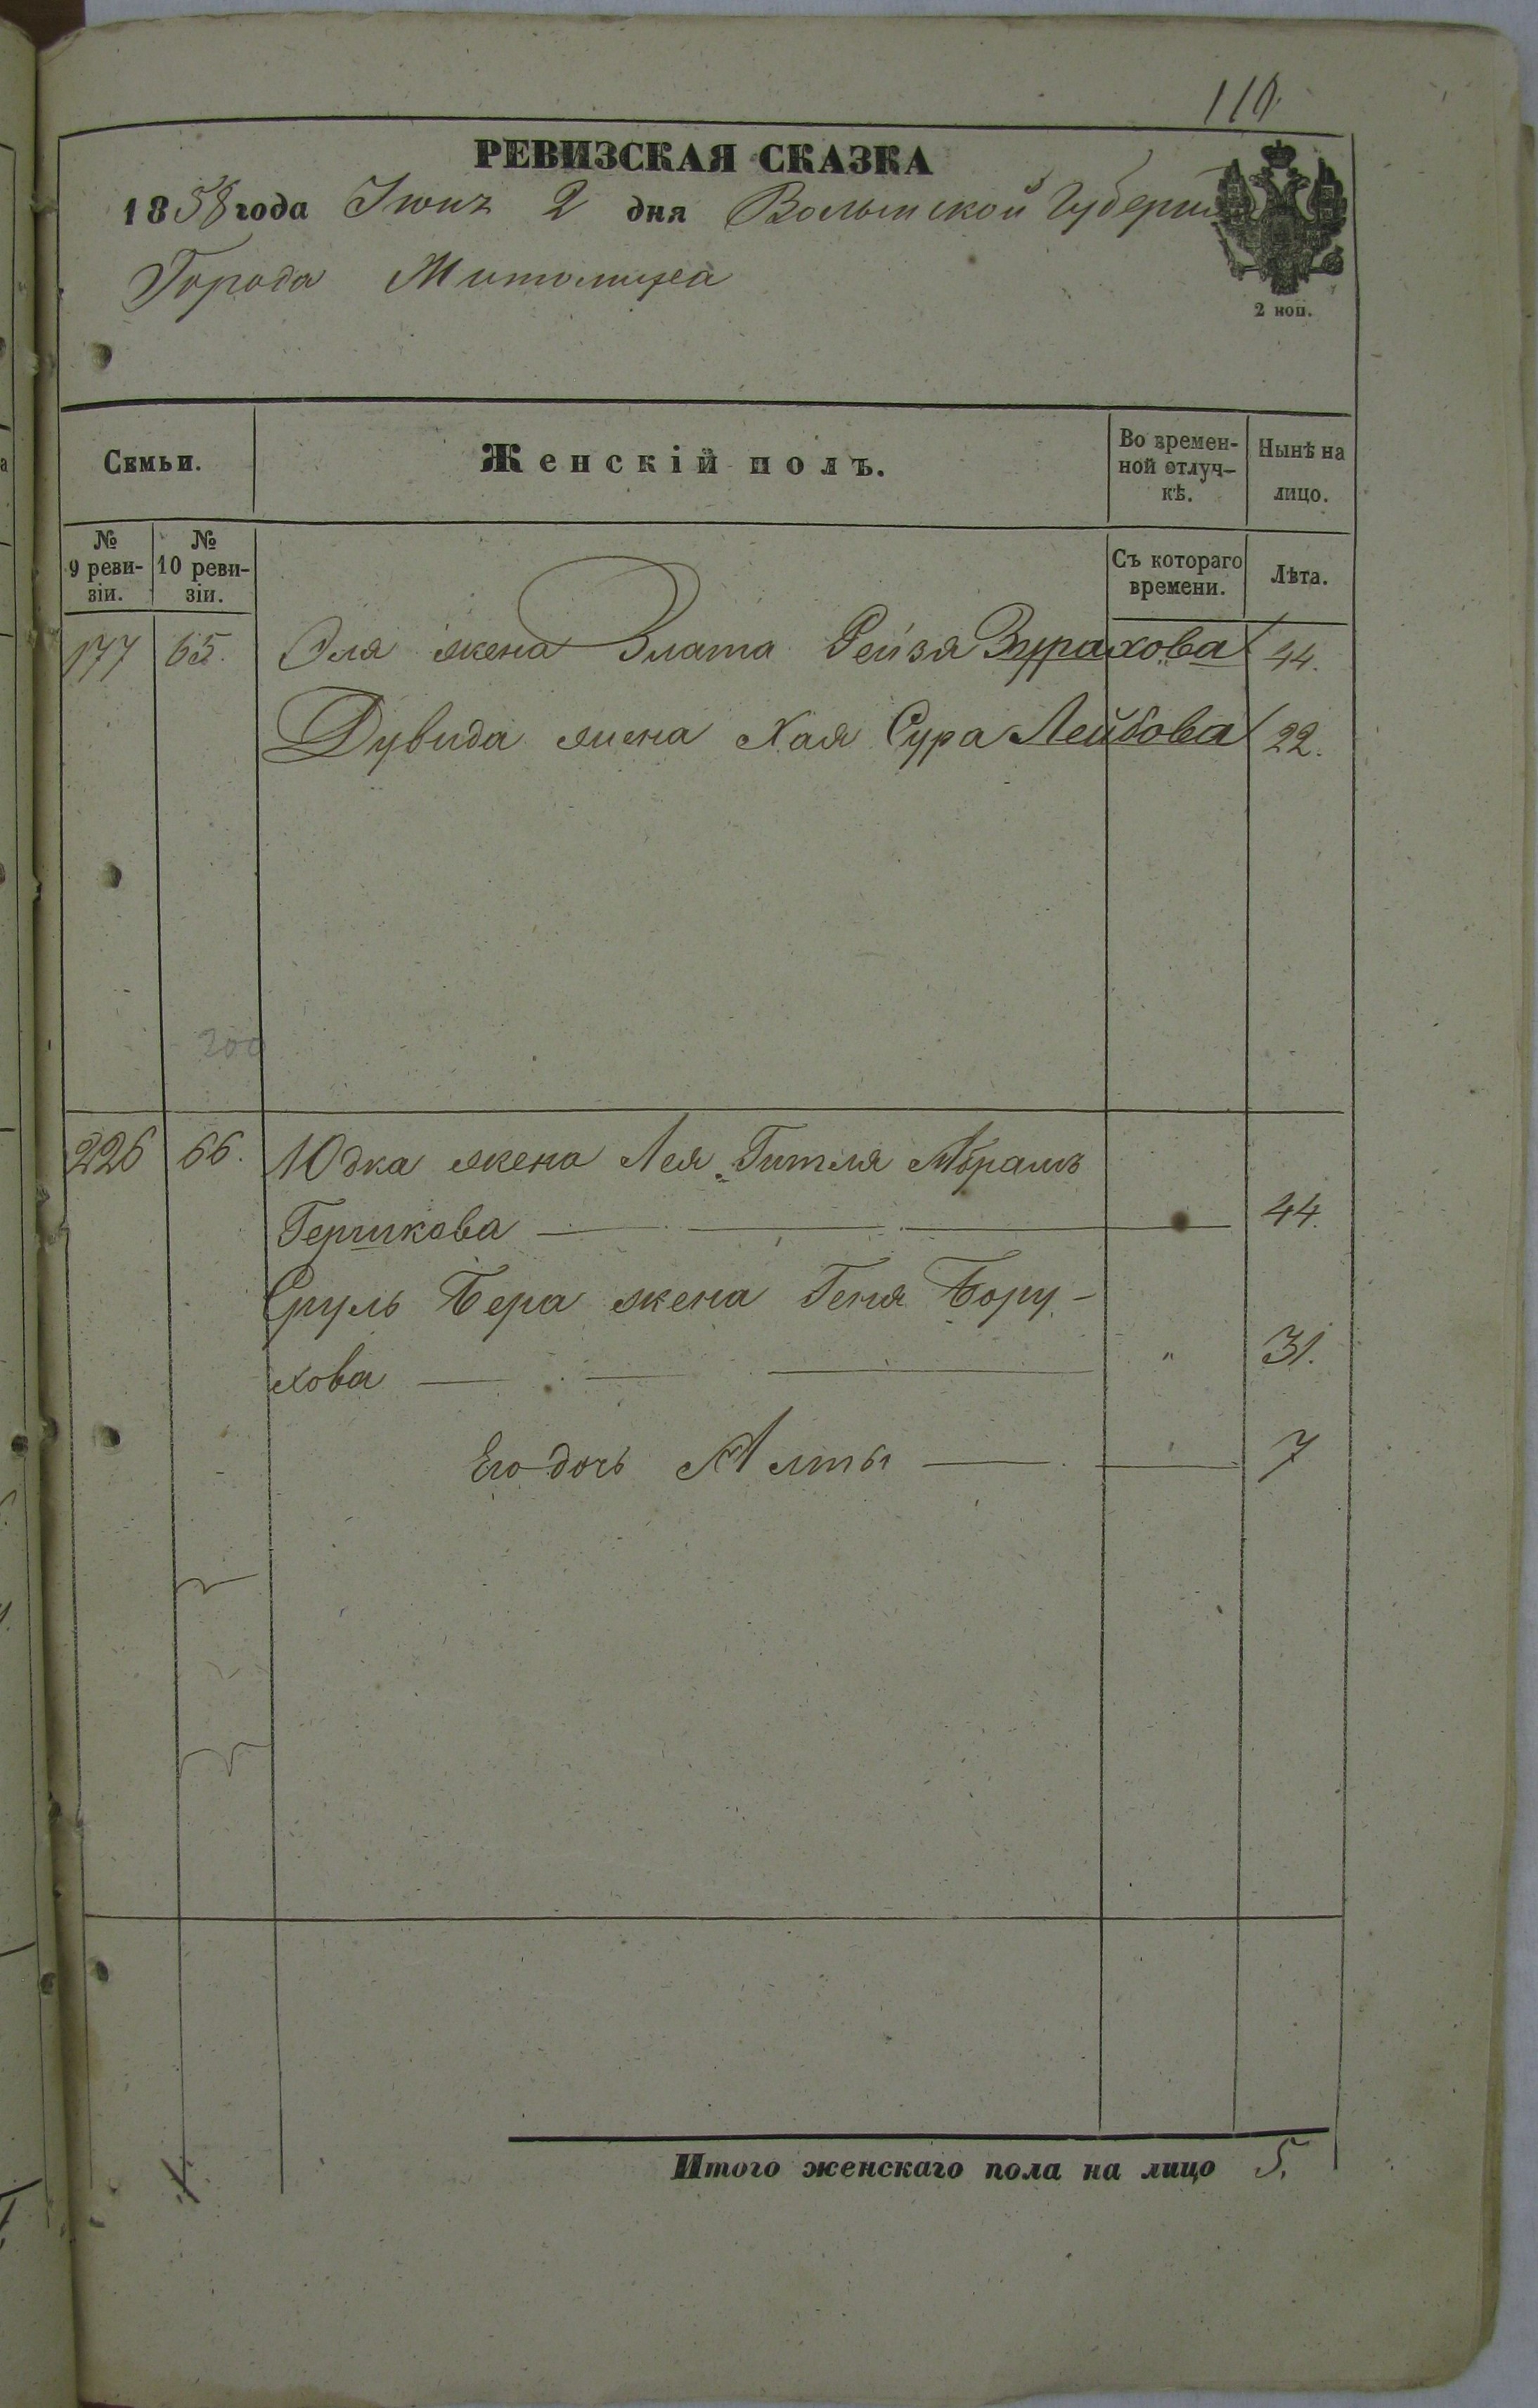 110.
РЕВИЗСКАЯ СКАЗКА
1858 года Іюня 2 дня Волынской Губерніи
Города Житомира
2 коп.
Семьи.
Женскій полъ.
Во времен-
ной отлуч-
кѣ.
Нынѣ на
лицо.
№
9 реви-
зіи.
№
10 реви-
зіи.
Съ котораго
времени.
Лѣта.
177 65. Эля жена Злата Рейзя Зурахова 44.
Дувида жена Хая Сура Лейбова 22.
200
226 66. Юдка жена Лея Гитля Абрамъ
Гершкова 44.
Сруль Бера жена Геня Бору-
хова " 31.
Его дочь Алты 7
Итого женскаго пола на лицо 5.